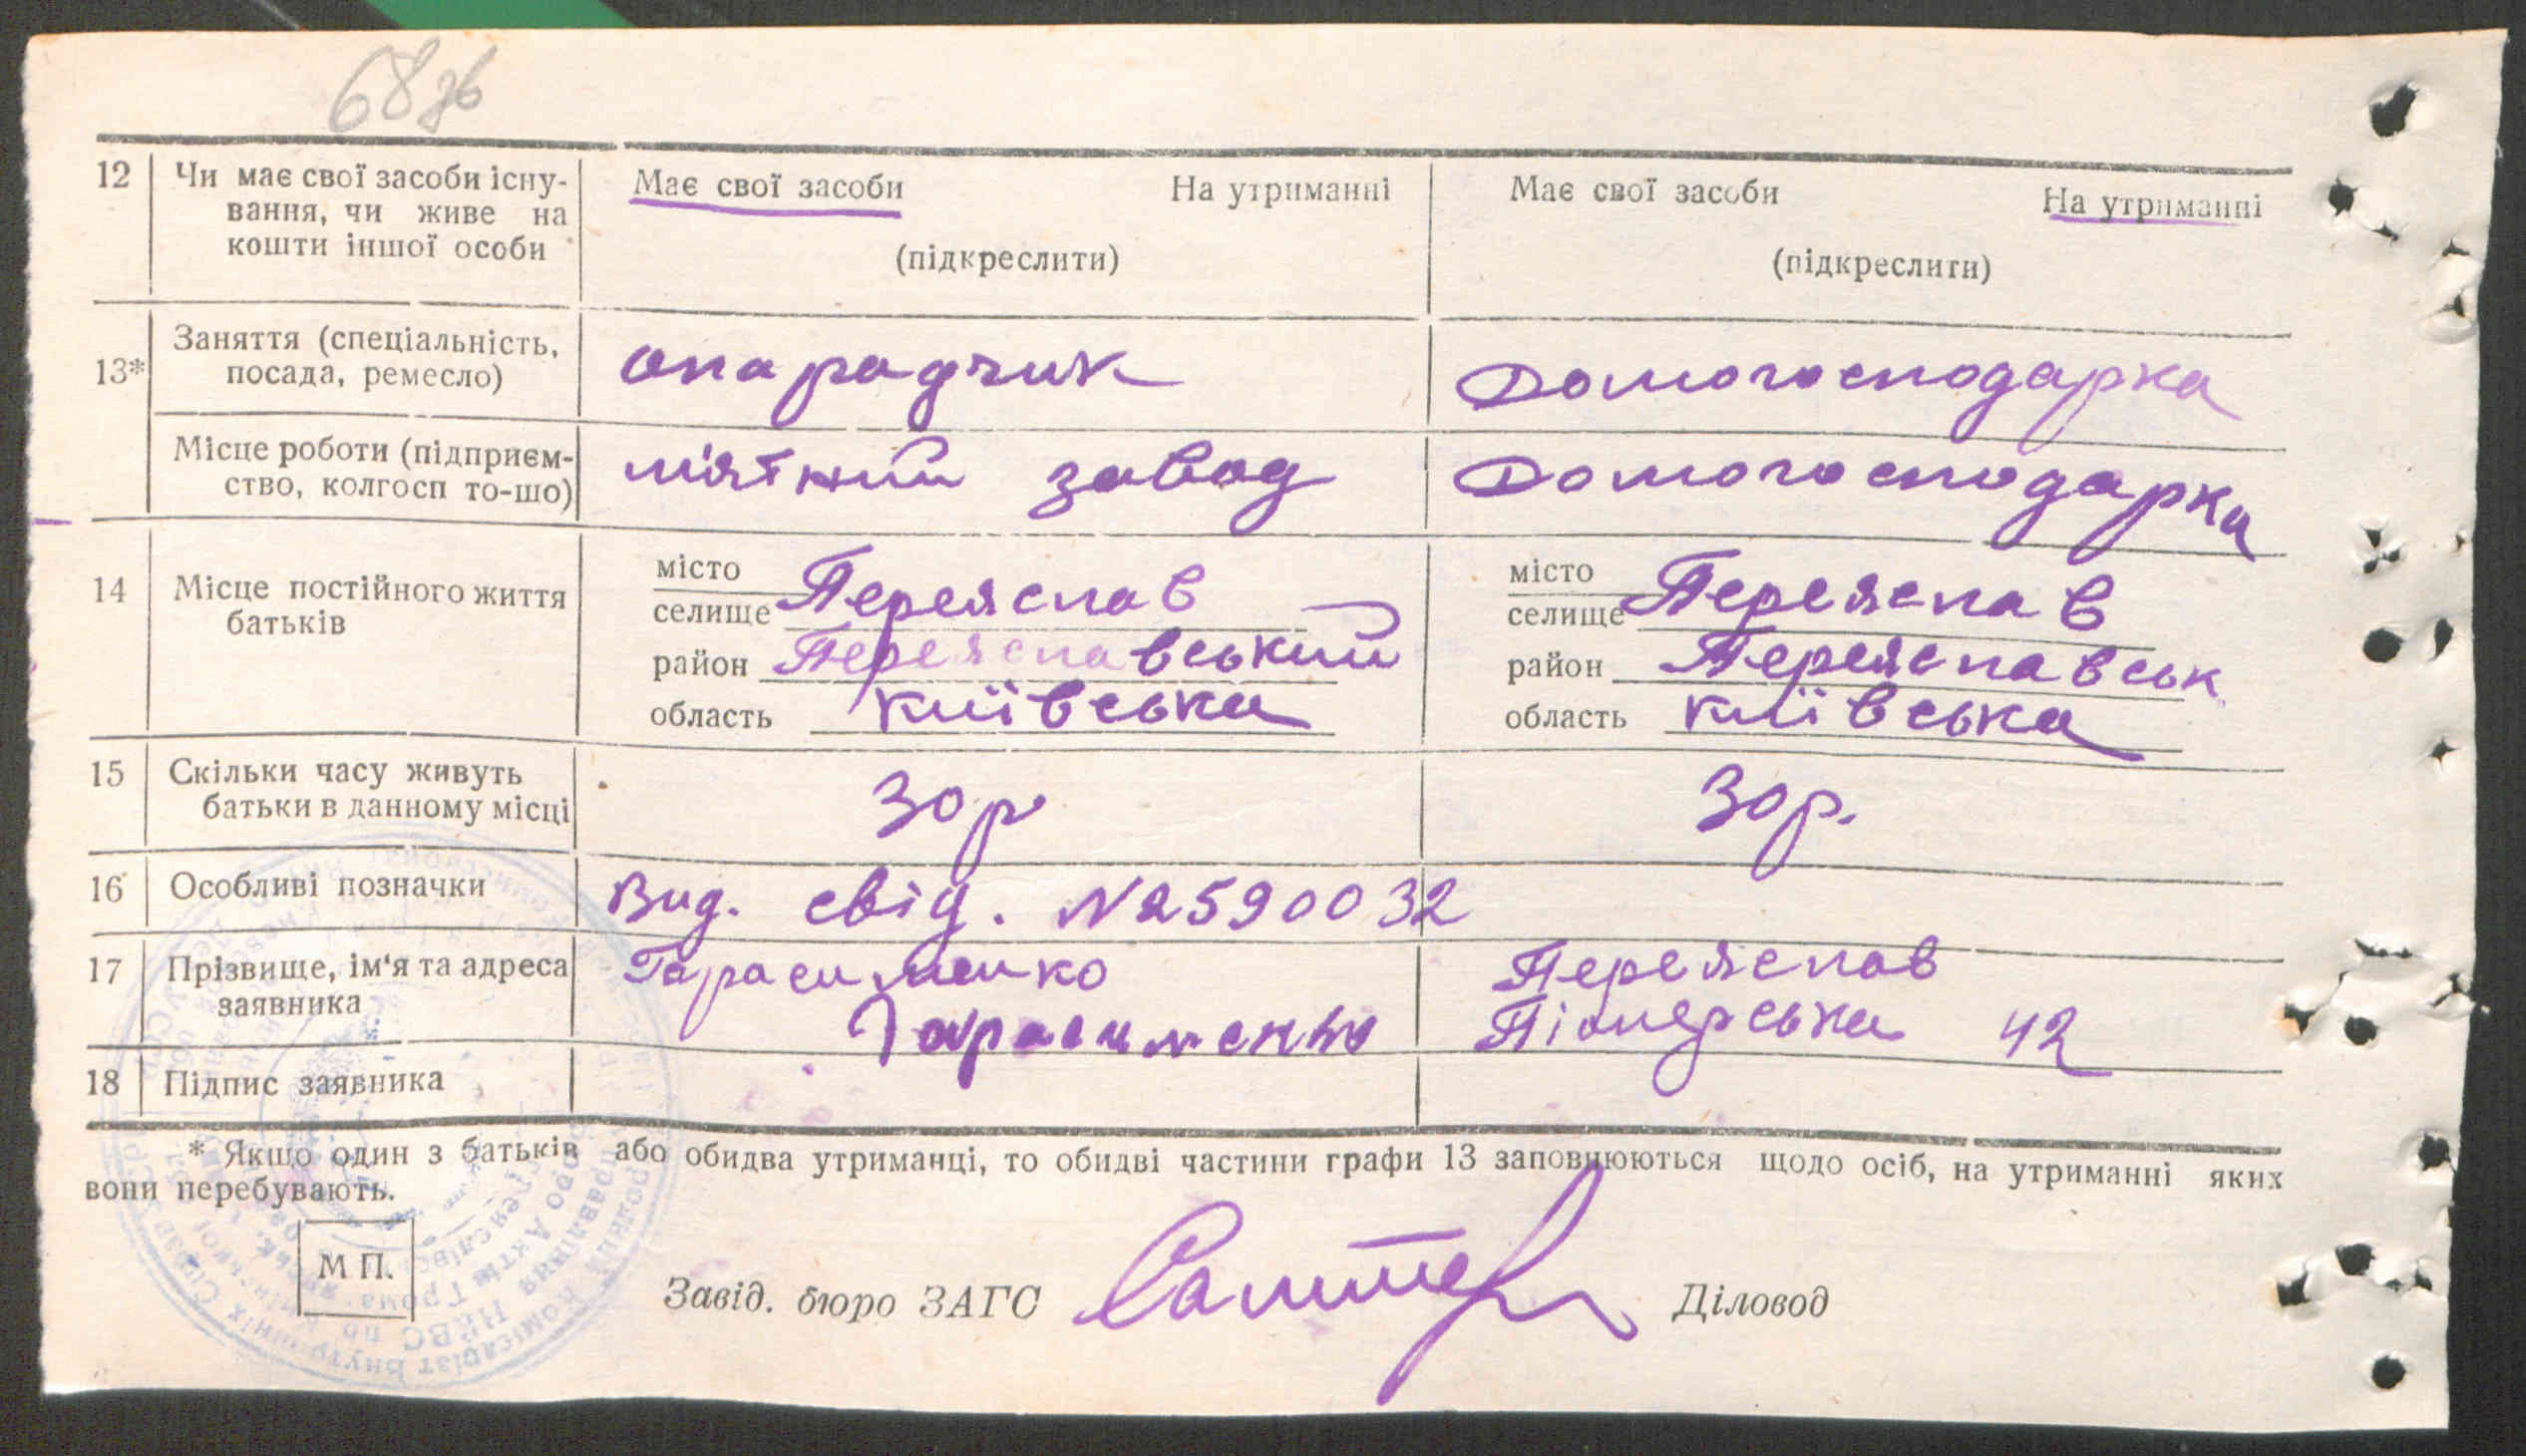 68 зв
12 Чи має свої засоби існу- Має свої засоби На утриманні Має свої засоби На утриманні
вання, чи живе на
кошти іншої особи (підкреслити) (підкреслити)
13* Заняття (спеціальність,
посада, ремесло) опарадчик Домогосподарка
Місце роботи (підприєм- м'ятний завод Домогосподарка
ство, колгосп то-що)
14 Місце постійного життя
батьків
місто
селище Переяслав
район Переяславський
область київська
місто
селище Переяслав
район Переяславськ
область київська
15 Скільки часу живуть
батьки в данному місці 30 р 30 р.
16 Особливі позначки Вид. свід. № 2590032
17 Прізвище, ім'я та адреса Тарасименко Переяслав
заявника Піонерська 42
Тарасименко
18 Підпис заявника
* Якщо один з батьків або обидва утриманці, то обидві частини графи 13 заповнюються щодо осіб, на утриманні яких
вони перебувають.
М П.
Завід. бюро ЗАГС Діловод